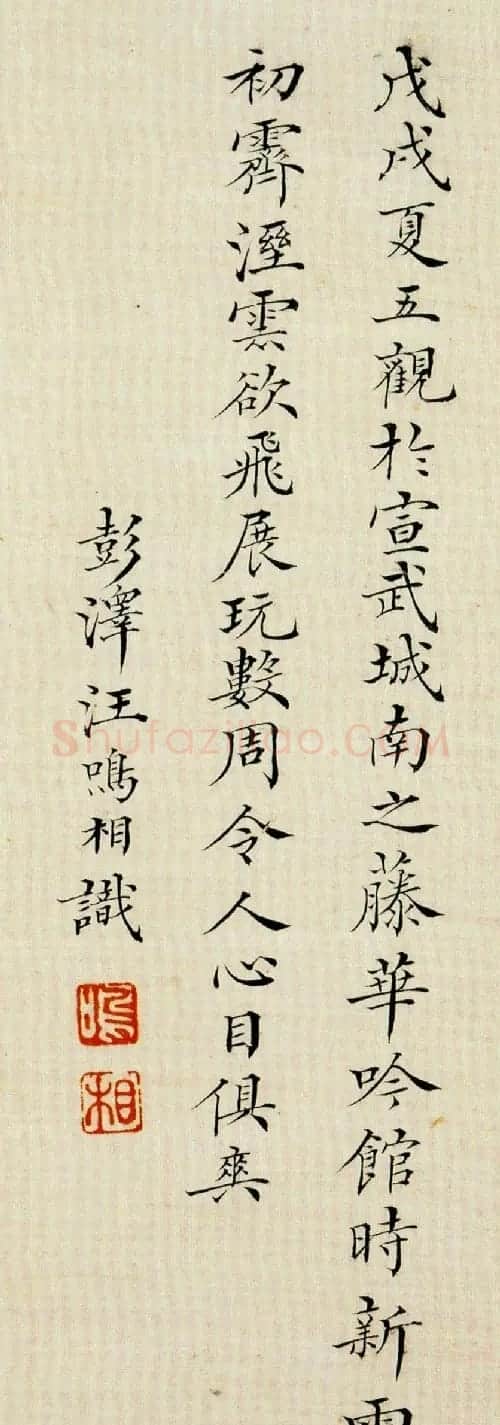 戊戌夏五觀於宣武城南之藤華吟館時新雨
初霽溼雲欲飛展玩數周令人心目俱爽
彭澤汪鳴相識
鳴
相
Shufazidao.com